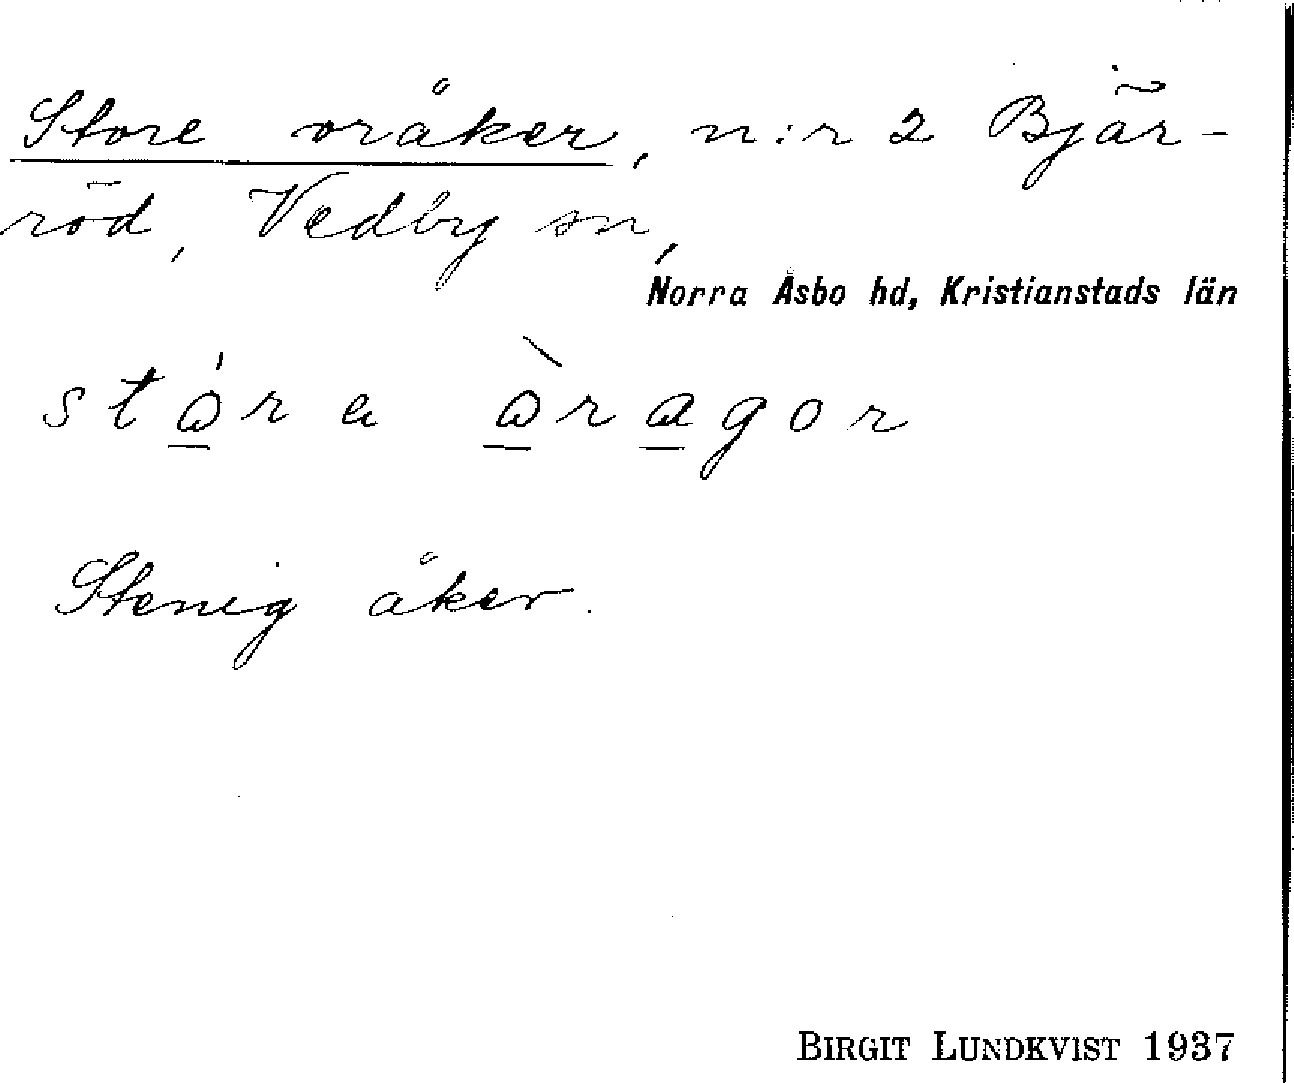 Store oråker, n:r 2 Bjär-
röd, Vedby sn,
Norra Åsbo hd, Kristianstads län
stóra òragor
Stenig åker.
BIRGIT LUNDKVIST 1937